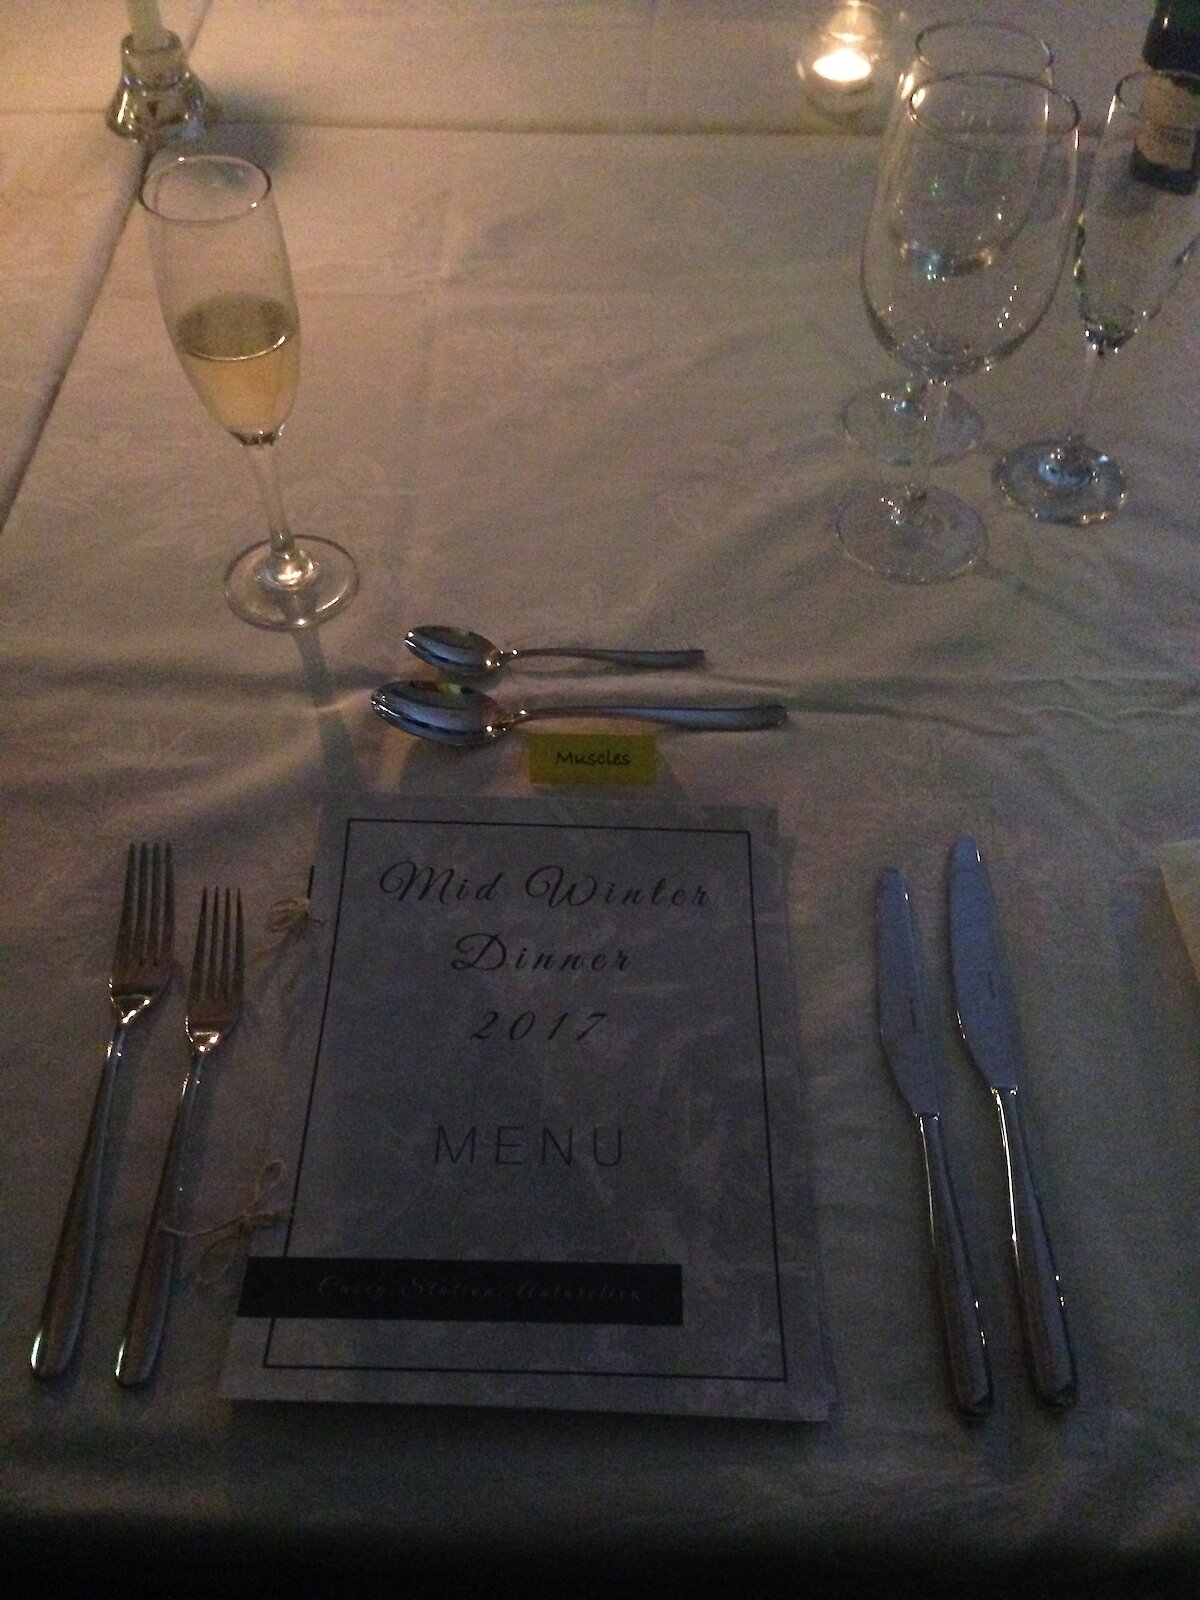 Muscles
Mid Winter
Dinner
2017
MENU
Casey Station, Antarctica